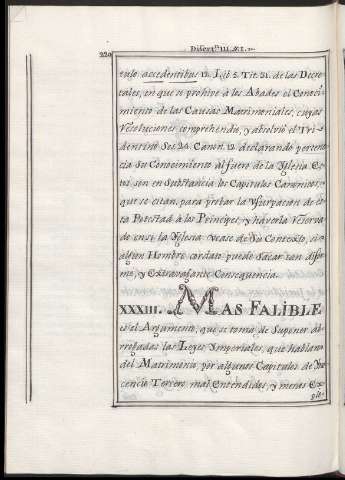 220
Disert.ⁿ III. §. I.
tulo accedentibus 12. Lib. 5. Tit. 31. de las Decre-
tales, en que se prohive à los Abades el Conoci-
miento de las Causas Matrimoniales, cuyas
Resoluciones comprehendió, y absolvió el Tri-
dentino Ses. 24. Canon. 12. declarando pertene-
cia Su Conocimiento al fuero de la Yglesia. Es-
tos son en Substancia los Capitulos Canonicos,
que se citan, para probar la Usurpacion de es-
ta Potestad à los Principes, y haverla Reserva-
do en si la Yglesia: vease de Su Contexto, si
algun Hombre cordato puede Sacar tan disfor-
me, y Extravagante Consequencia.
XXXIII. MAS FALIBLE
es el Argumento, que se toma de Suponer ab-
rogadas las Leyes Ymperiales, que hablavan
del Matrimonio, por algunos Capitulos de Yno-
cencio Tercero mal Entendidos, y menos Ex-
pli-